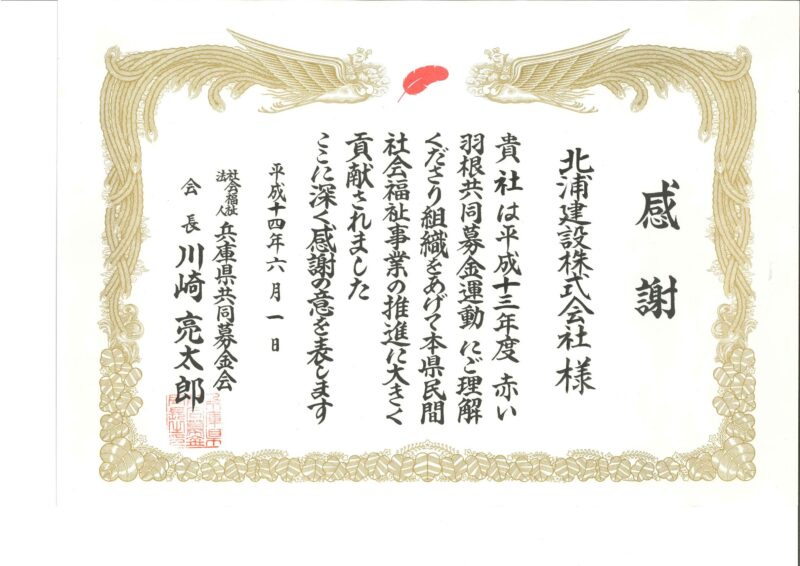 感謝
北浦建設株式会社 様
貴社は平成十三年度 赤い
羽根共同募金運動 にご理解
くださり組織をあげて本県民間
社会福祉事業の推進に大きく
貢献されました
ここに深く感謝の意を表します
平成十四年六月一日
社会福祉法人 兵庫県共同募金会
会長 川崎亮太郎